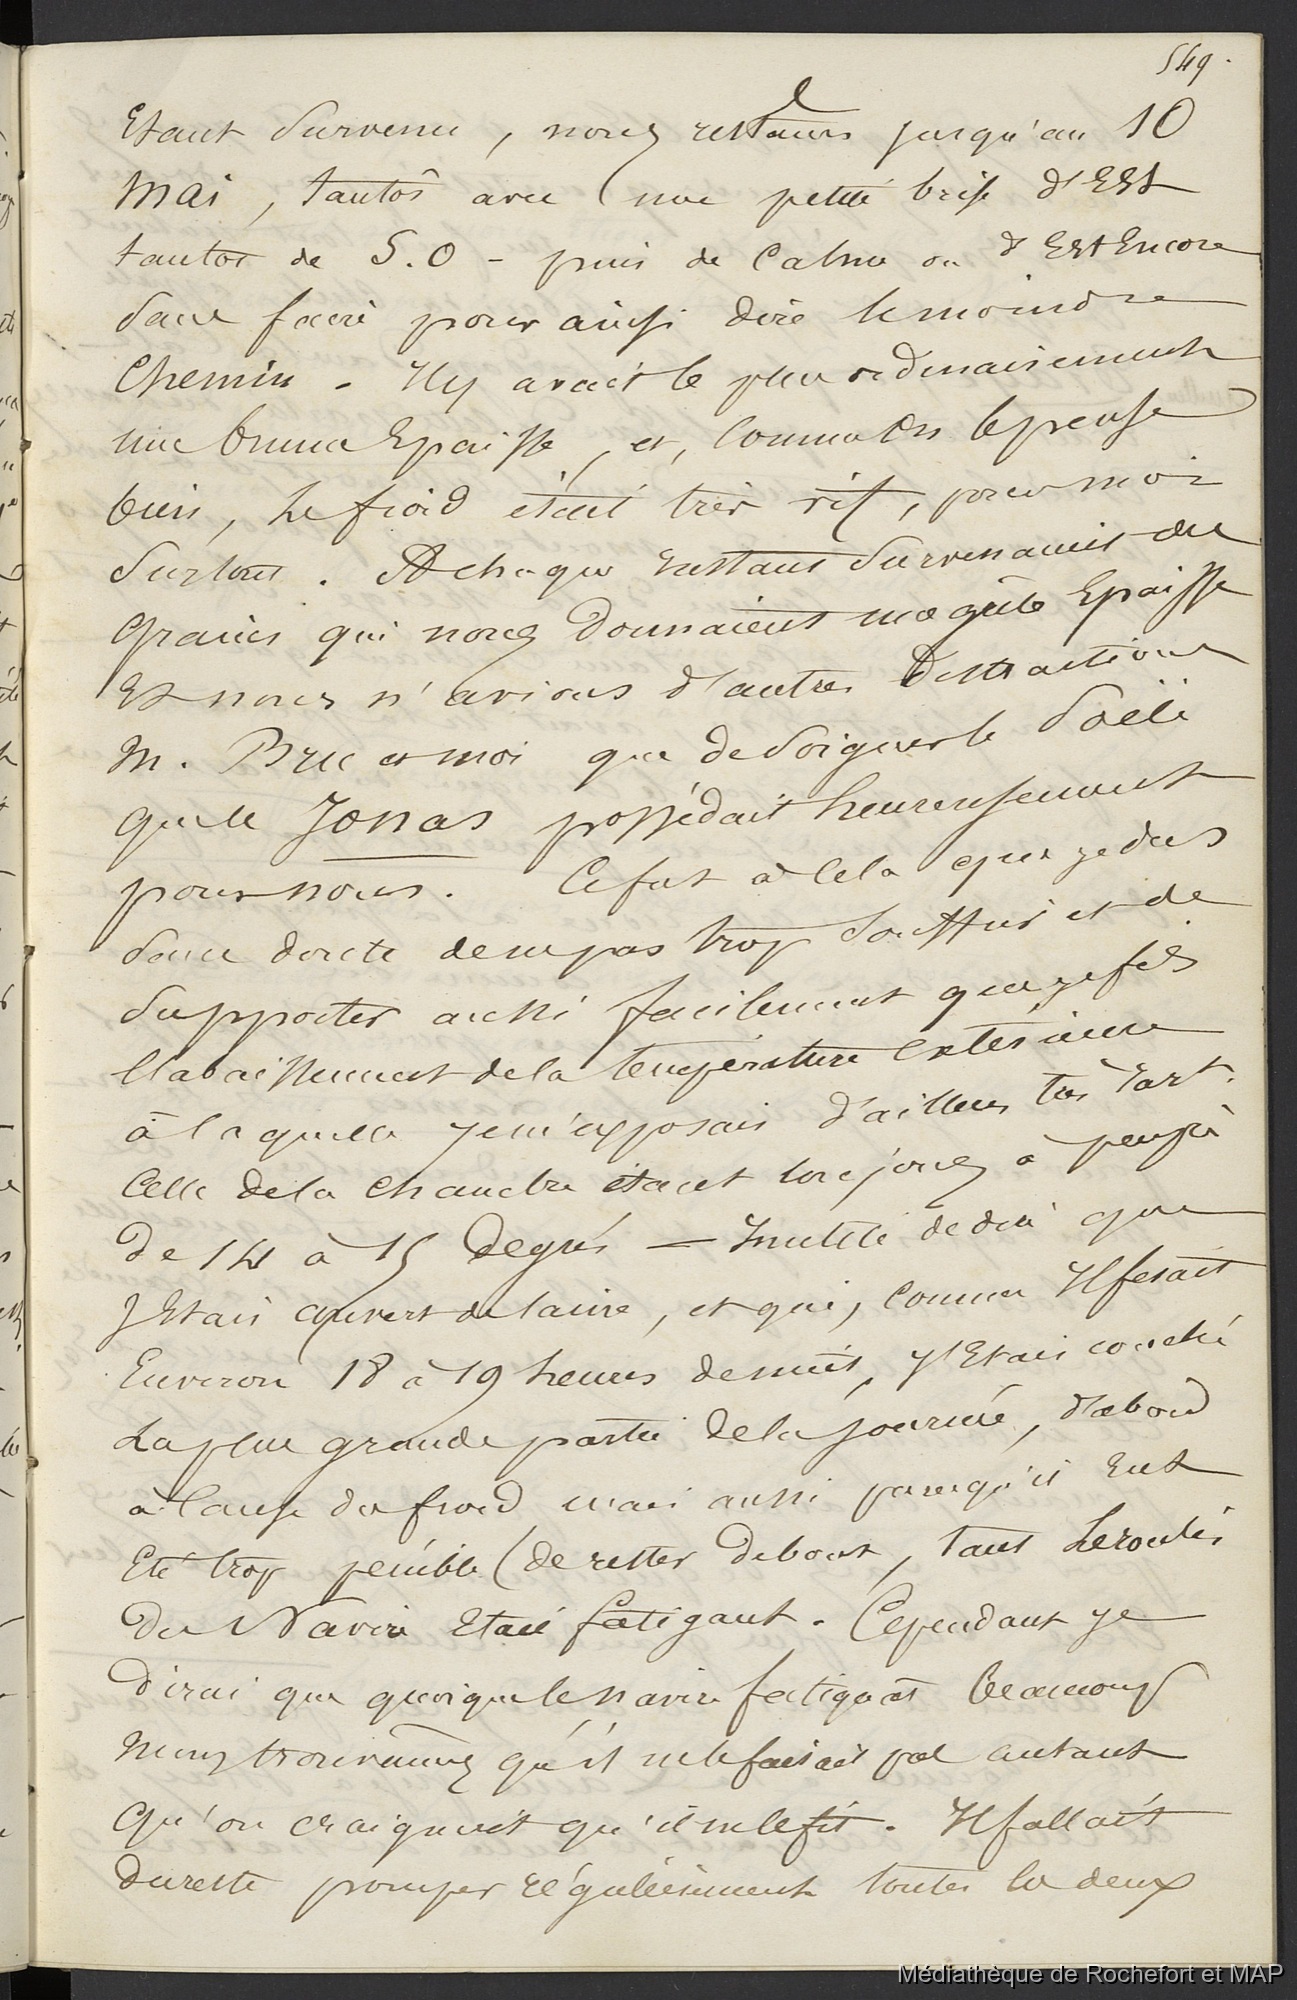 549.
Etant survenu, nous restâmes jusqu'au 10
Mai, tantôt avec une petite brise d'Est
tantot de S.O - puis de Calme ou d'Est Encore
sans faire pour ainsi dire le moindre
Chemin - Il y avait le plus ordinairement
une brume Epaisse, et, comme on le pense
bien, le froid était très vif, pour moi
surtout. A chaque instant survenaient des
grains qui nous donnaient neige Epaisse
Et nous n'avions d'autres distractions
M. Bruc et moi que de soigner le poële
que le Jonas possédait heureusement
pour nous. Ce fut à cela que je dus
sans doute de ne pas trop souffrir et de
supporter aussi facilement que je fis
l'abaissement de la température extérieure
à laquelle je m'exposais d'ailleurs très rart.
Celle de la chambre étant toujours à peu près
de 14 à 15 degrés — Inutile de dire que
J'Etais couvert de laine, et que, comme Il fesait
Environ 18 à 19 heures de nuit, j'Etais couché
La plus grande partie de la journée, d'abord
à cause du froid mais aussi parcequ'il Eut
Eté trop pénible de rester debout, tant Le roulis
du Navire Etait fatigant. Cependant je
dirai que quoique le navire fatiguât beaucoup
nous trouvâmes qu'il ne le faisait pas autant
qu'on craignait qu'il ne le fit. Il fallait
du reste pomper régulièrement toutes les deux
Médiathèque de Rochefort et MAP